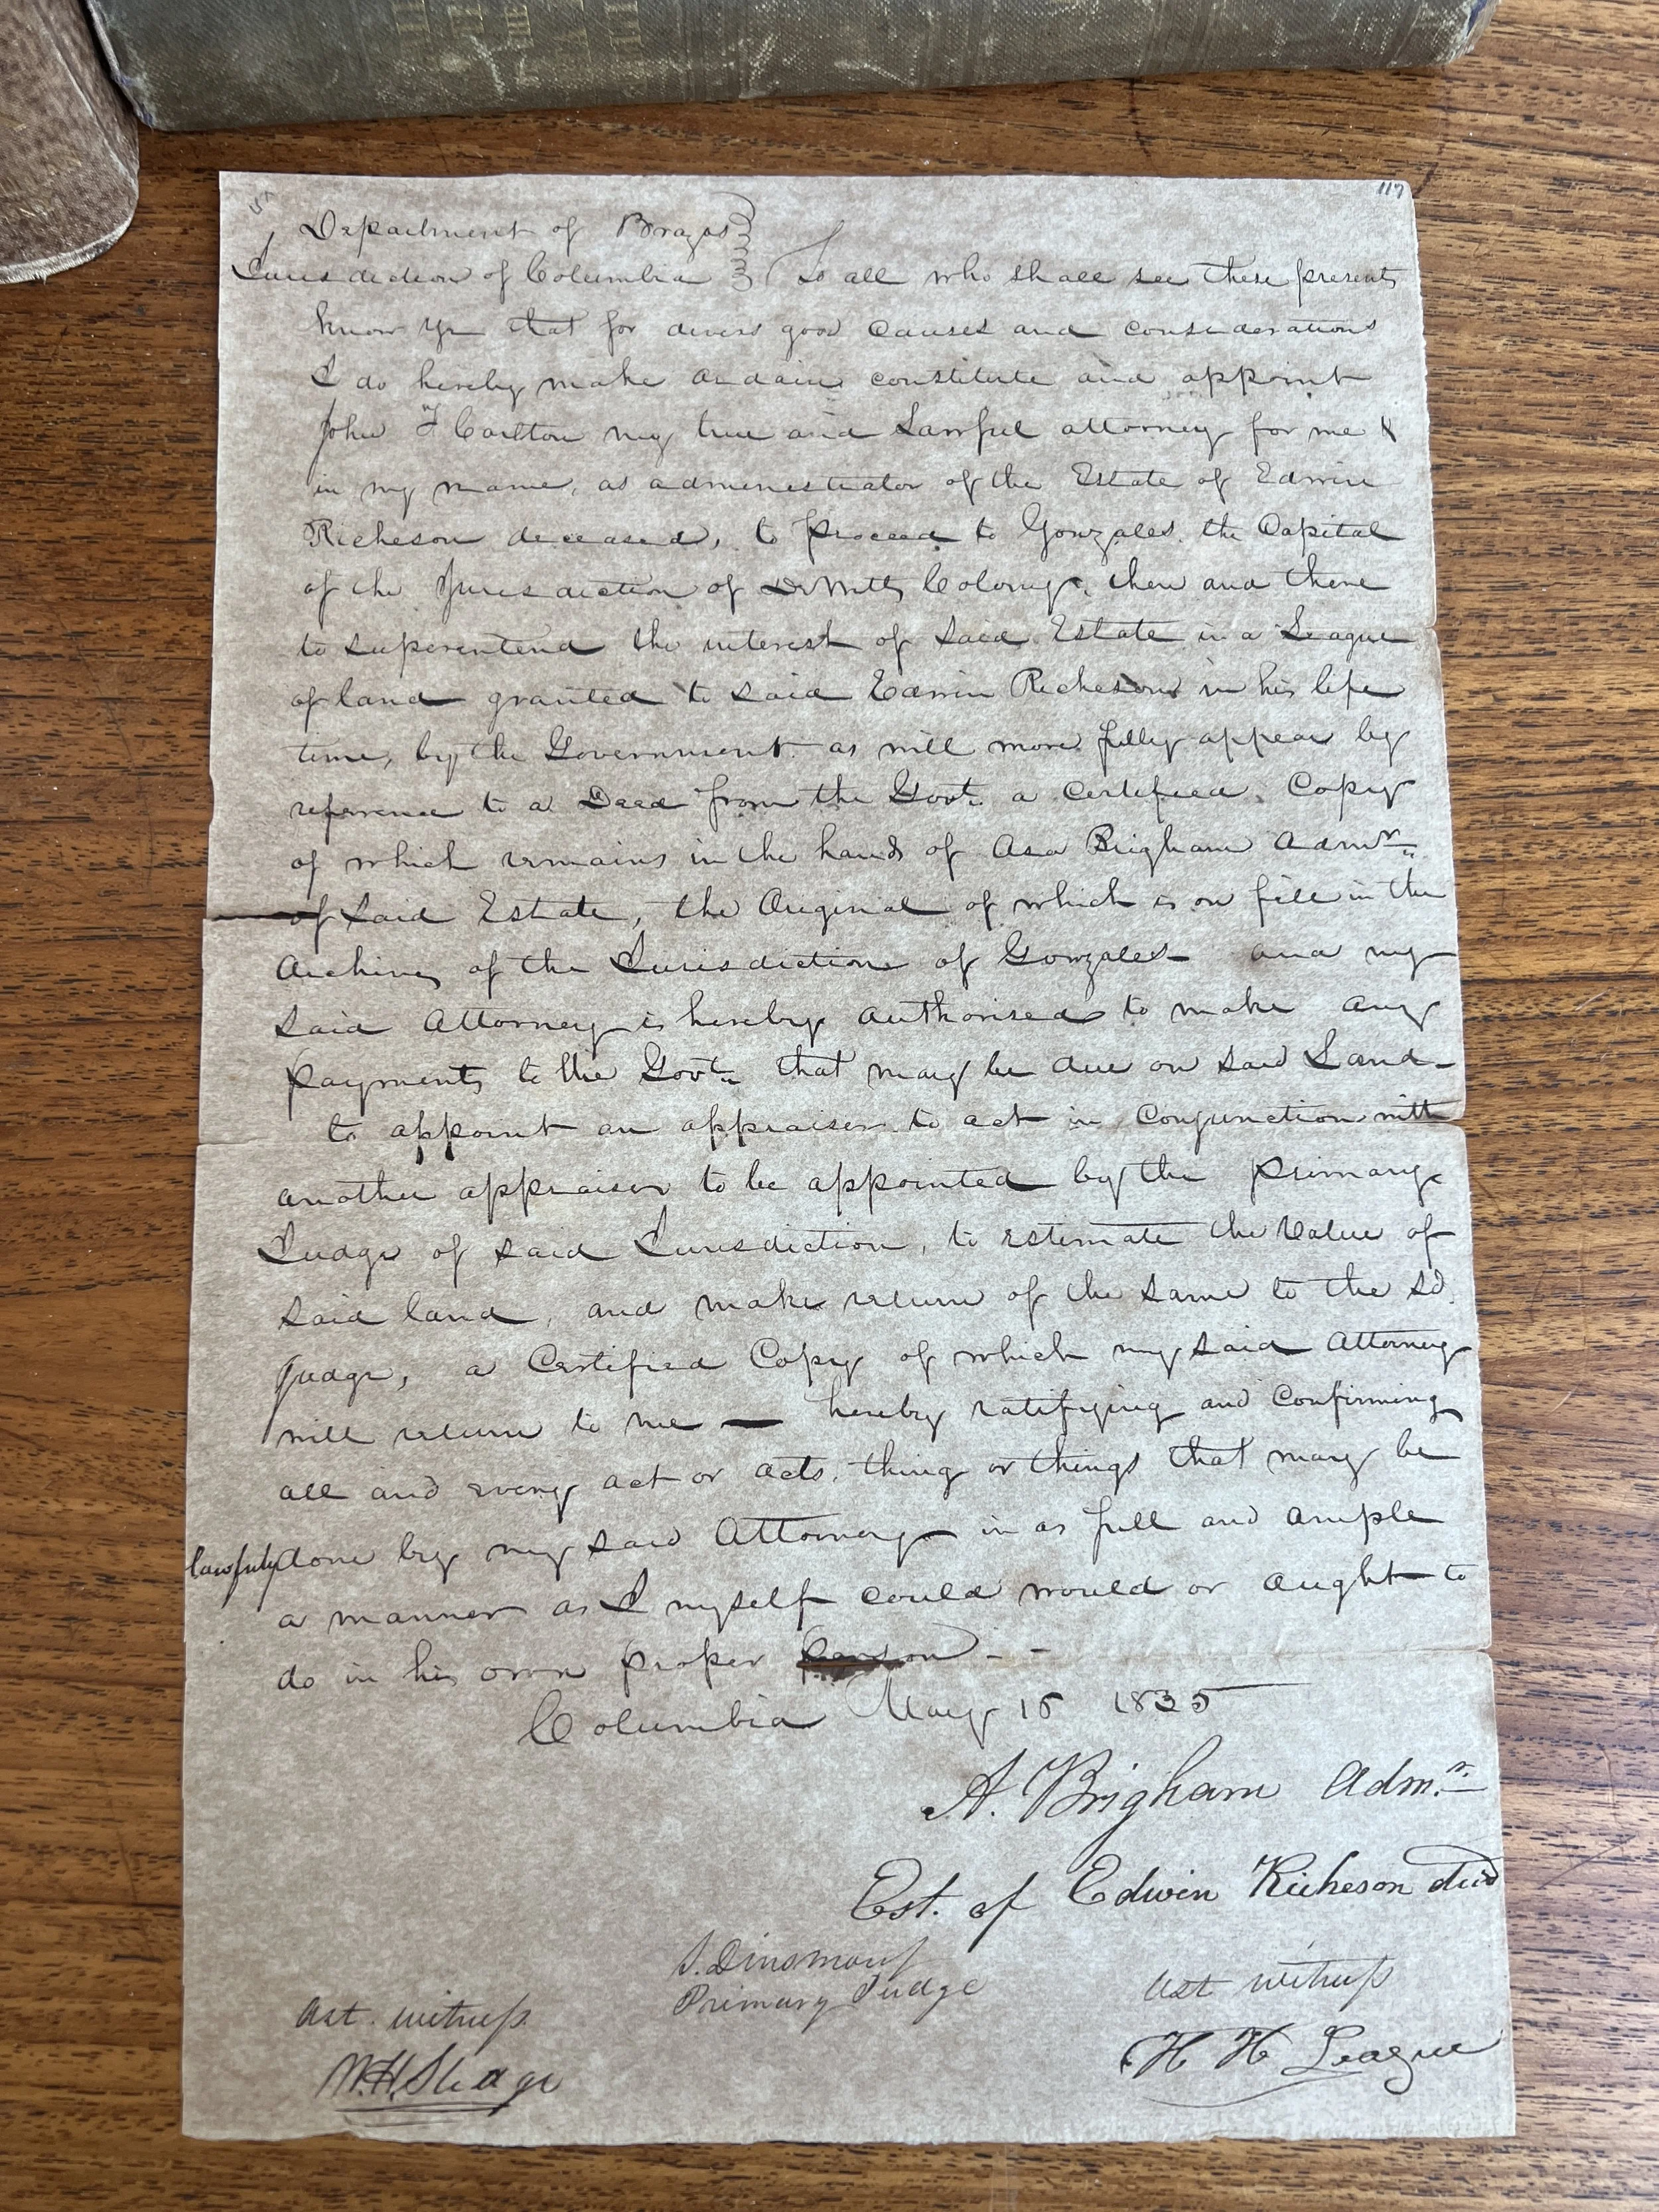 117
Department of Brazos
Jurisdiction of Columbia To all who shall see these presents
know ye that for divers good causes and considerations
I do hereby make ordain constitute and appoint
John F Carlton my true and Lawful attorney for me &
in my name, as administrator of the Estate of Edwin
Richeson deceased, to proceed to Gonzales the Capital
of the Jurisdiction of DeWitts Colony, then and there
to superentend the interest of said Estate in a League
of land granted to said Edwin Richeson in his life
time, by the Government as will more fully appear by
reference to a Deed from the Govt. a Certified Copy
of which remains in the hands of Asa Brigham Admr.
of said Estate, the Original of which is on file in the
Archives of the Jurisdiction of Gonzales and my
said Attorney is hereby authorised to make any
payments to the Govt. that may be due on said Land-
to appoint an appraiser to act in Conjunction with
another appraiser to be appointed by the primary
Judge of said Jurisdiction, to estimate the Value of
said land, and make return of the same to the sd.
Judge, a Certified Copy of which my said Attorney
will return to me — hereby ratifying and Confirming
all and every act or acts, thing or things that may be
lawfuly done by my said Attorney in as full and ample
a manner as I myself could would or aught to
do in his own proper person - -
Columbia May 15 1835
A. Brigham Admr.
Est. of Edwin Richeson decd
S. Dinsmore
Primary Judge
Ast witness
Ast. witness
H H League
W.H. Sledge